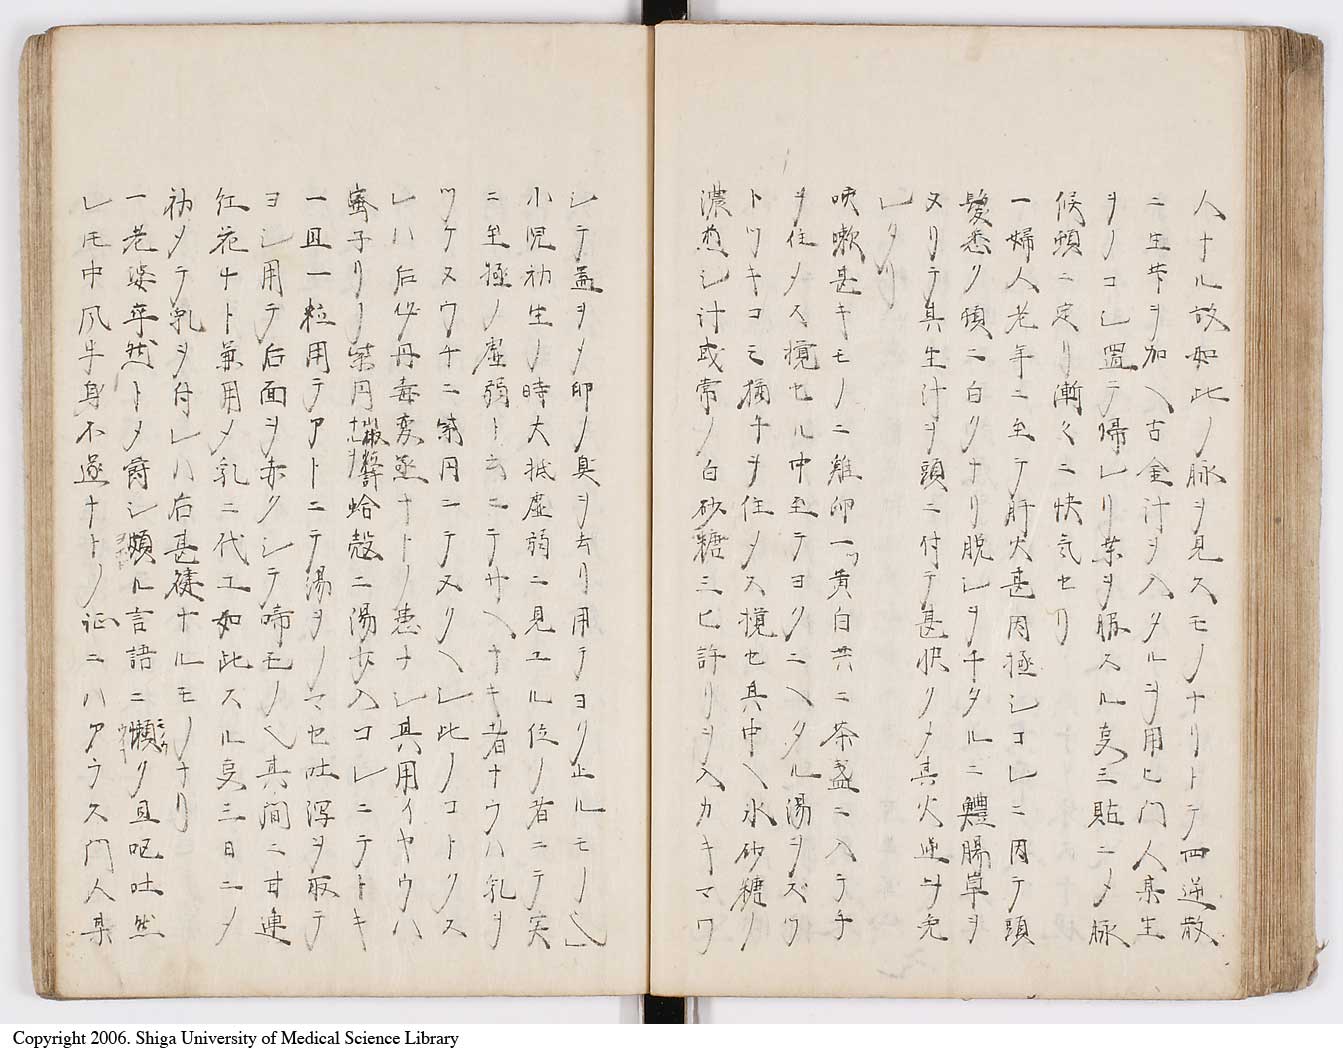 人ナル故如此ノ脉ヲ見スモノナリトテ四逆散
ニ生芐ヲ加ヘ古金汁ヲ入タルヲ用ヒ門人某生
ヲノコシ置テ帰レリ薬ヲ服スル叓三貼ニメ脉
候頓ニ定リ漸々ニ快気セリ
一婦人老年ニ至テ肝火甚因極シコレニ因テ頭
髪悉ク頓ニ白クナリ脱シヲ千タルニ鱧腸草ヲ
ヌリテ其生汁ヲ頭ニ付テ甚快クメ其火逆ヲ免
レタリ
咳嗽甚キモノニ雞卵一ツ黄白共ニ茶盞ニ入テ手
ヲ住メス攪セル中至テヨクニヘタル湯ヲズツ
トツキコミ猶手ヲ住メス攪セ其中ヘ氷砂糖ノ
濃煎シ汁或常ノ白砂糖三匕許リヲ入カキマワ
シテ蓋ヲメ卵ノ臭ヲ去リ用テヨリ止ルモノ也
小児初生ノ時大抵虚弱ニ見ユル位ノ者ニテ実
ニ至極ノ虚弱ト云ニテサヘナキ者ナウハ乳ヲ
ツケスウチニ紫円ニテヌクヘシ此ノコトクス
レハ后必丹毒変亟ナトノ患ナシ其用イヤウハ
蜜子リノ紫円 蛤殻ニ湯少入コレニテトキ
一且一粒用テアトニテ湯ヲノマセ吐瀉ヲ取テ
ヨシ用テ后面ヲ赤クシテ啼モノ也其間ニ甘連
紅花ナト兼用メ乳ニ代エ如此スル叓三日ニメ
初メテ乳ヲ付レハ后甚健ナルモノナリ
一老婆卒然トメ欝シ頗ル言語ニ懶ク且嘔吐然
レ𪜈中風半身不遂ナトノ証ニハアラス門人某
Copyright 2006. Shiga University of Medical Science Library